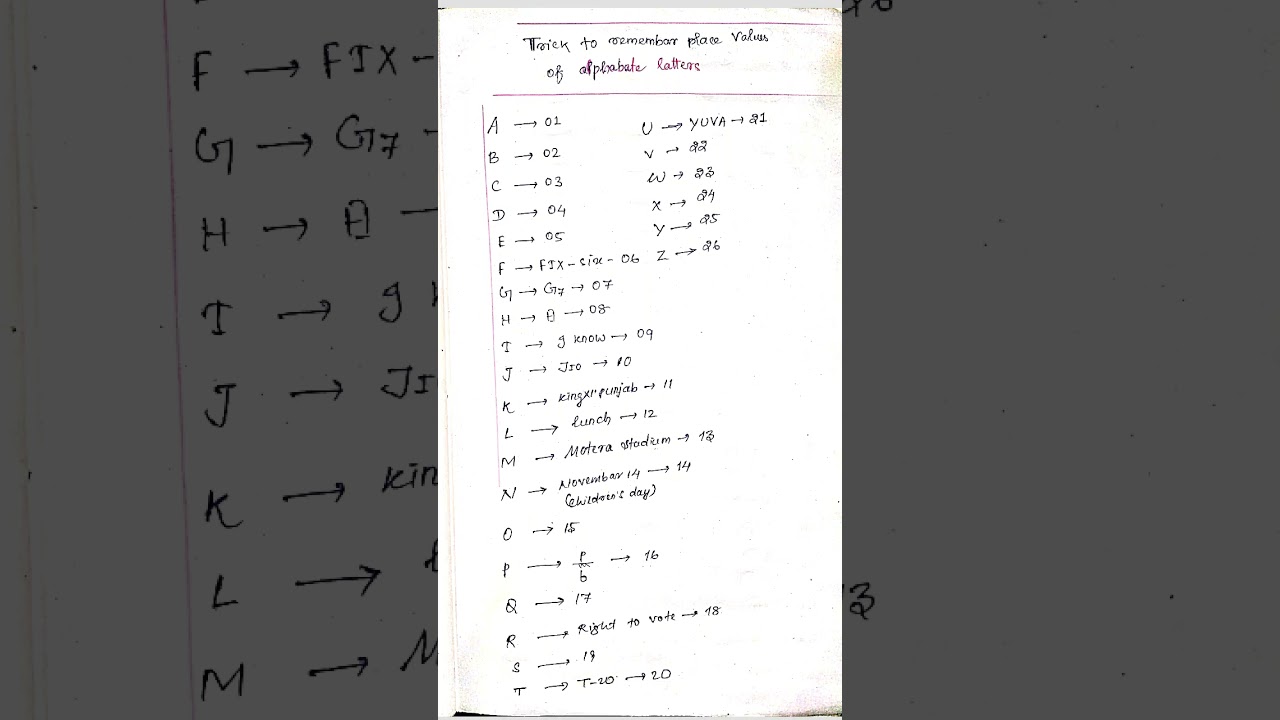 Trick to remembar place values
of alphabate latters
A → 01
B → 02
C → 03
D → 04
E → 05
F → FIX - six - 06
G → G7 → 07
H → 8 → 08
I → g know → 09
J → JIO → 10
K → KingXI punjab → 11
L → lunch → 12
M → Motera stadium → 13
N → Novembar 14 → 14
(children's day)
O → 15
P → P/6 → 16
Q → 17
R → Right to vote → 18
S → 19
T → T-20 → 20
U → YUVA → 21
V → 22
W → 23
X → 24
Y → 25
Z → 26